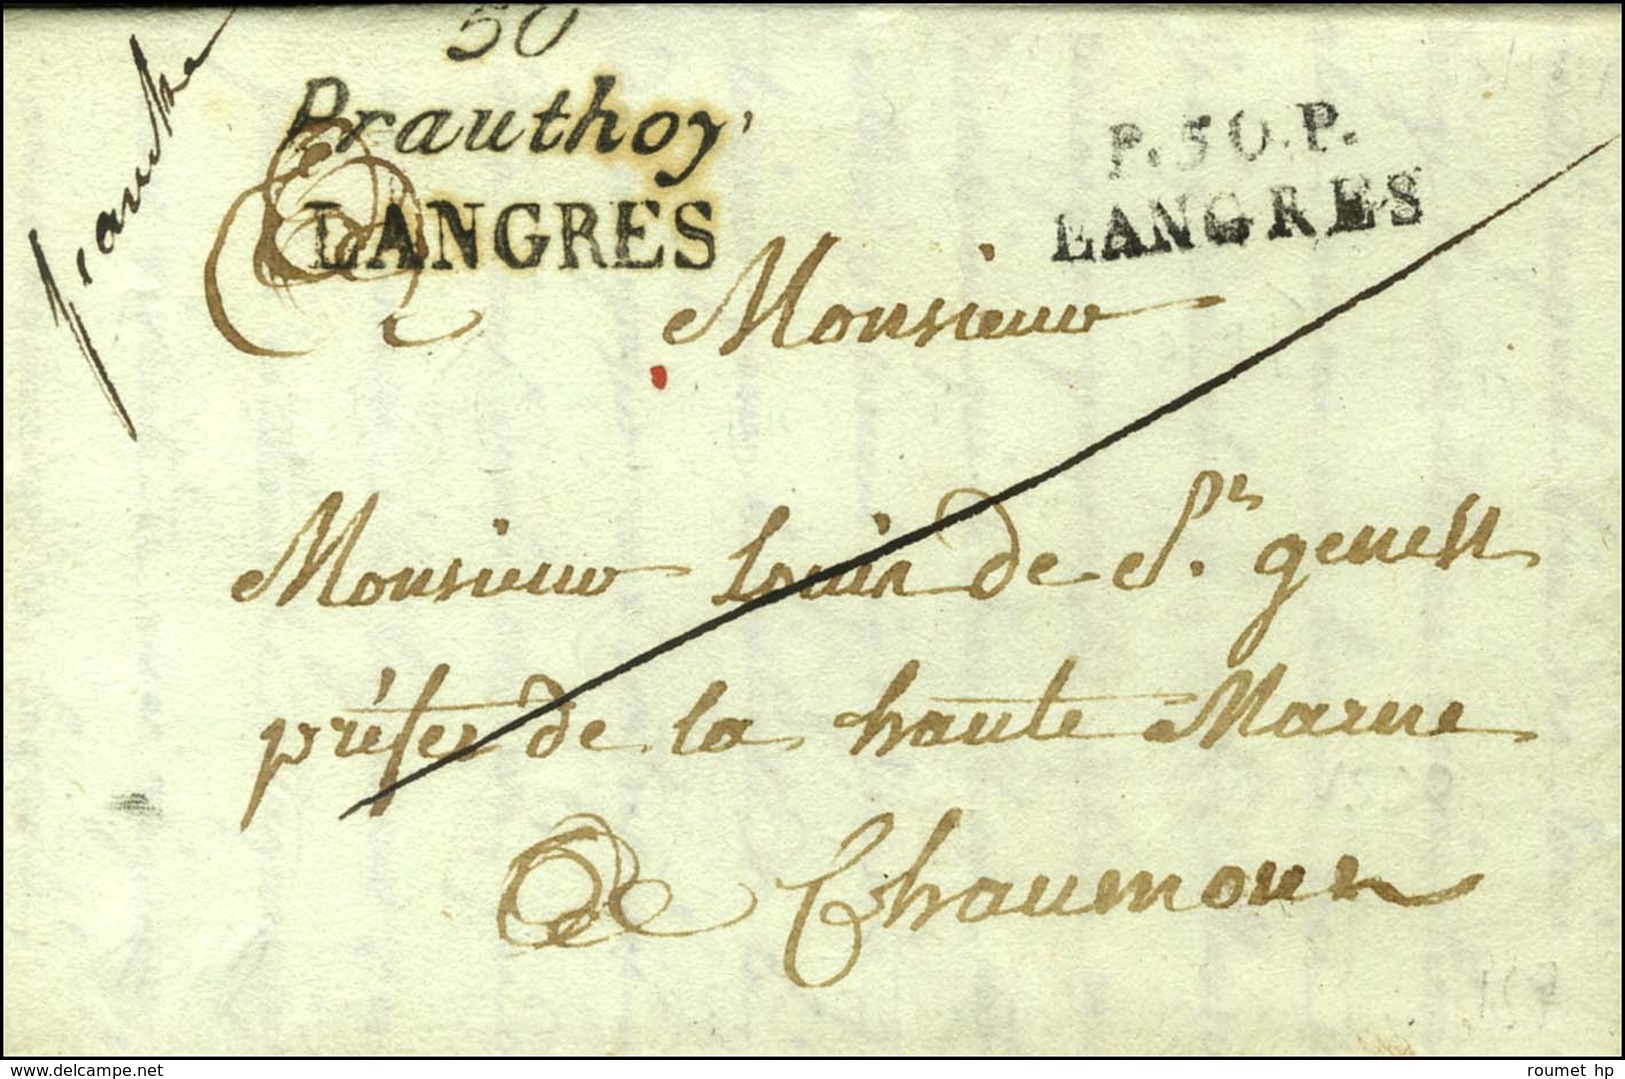 franche
50
Prauthoy,
LANGRES
P.50.P.
LANGRES
Monsieur
Monsieur Louis de St. genest
préfet de la haute Marne
a Chaumont
www.delcampe.net
roumet hp